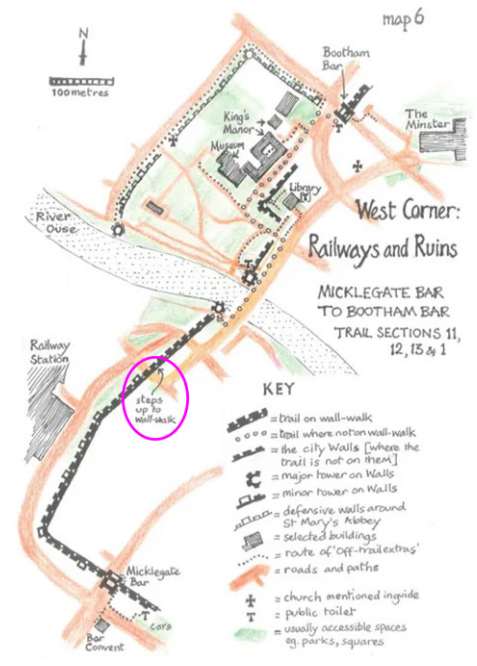 map 6
N
100 metres
Bootham
Bar
The
Minster
King's
Manor
Museum
Library
River
Ouse
West Corner:
Railways and Ruins
MICKLEGATE BAR
TO BOOTHAM BAR
TRAIL SECTIONS 11,
12, 13 & 1
Railway
Station
steps
up to
wall-walk
KEY
= trail on wall-walk
= trail where not on wall-walk
= the city Walls [where the
trail is not on them]
= major tower on Walls
= minor tower on Walls
= defensive walls around
St Mary's Abbey
= selected buildings
= route of 'off-trail extras'
= roads and paths
= church mentioned in guide
T = public toilet
= usually accessible spaces
eg. parks, squares
Micklegate
Bar
T
cars
Bar
Convent